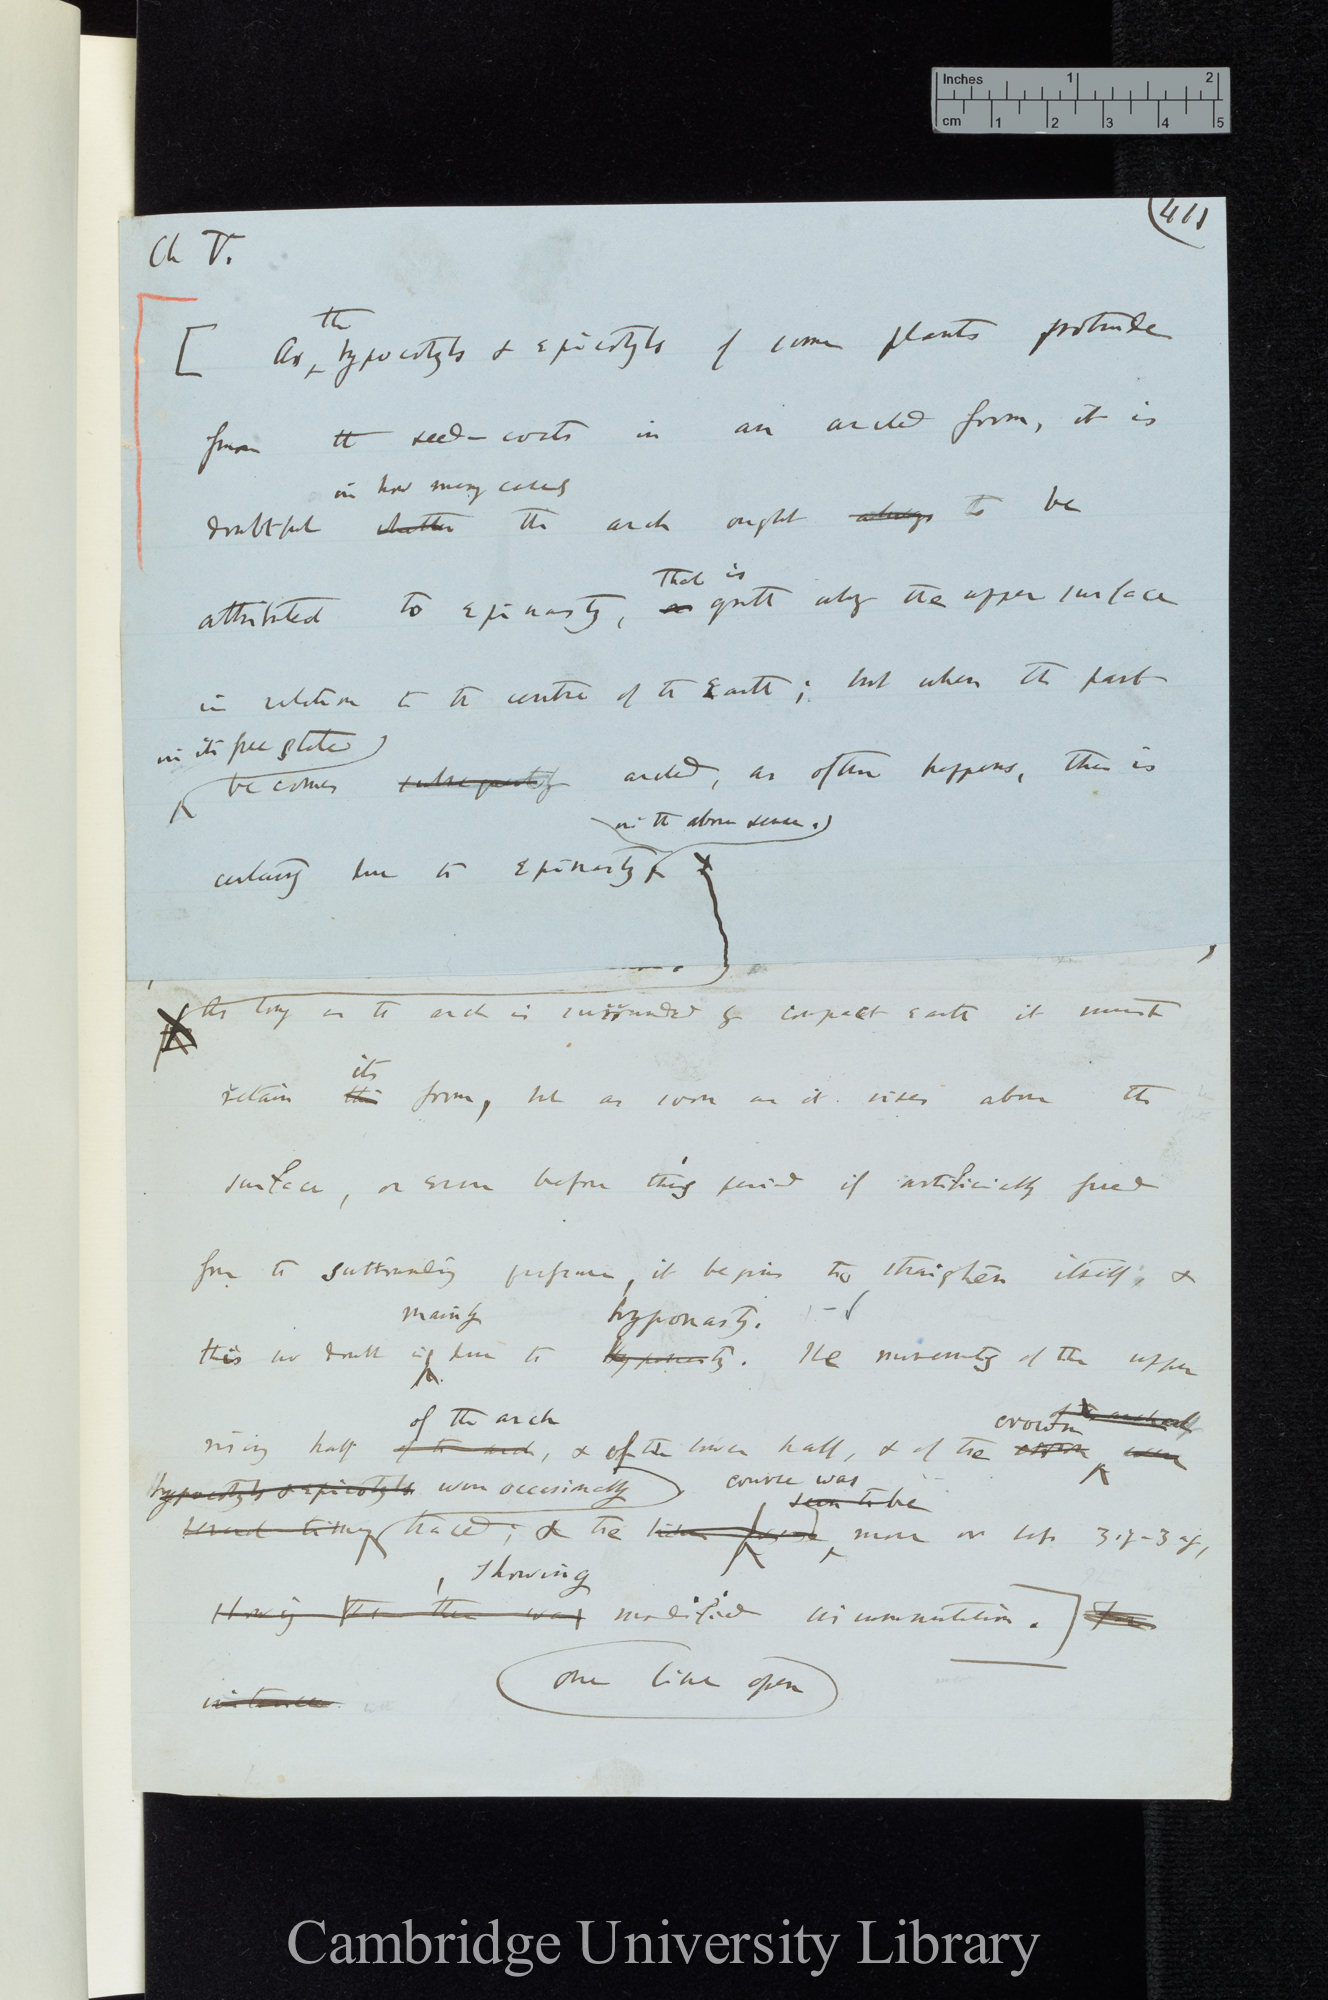 Inches 1 2
cm 1 2 3 4 5
Ch V.
the
[ As hypocotyls & epicotyls of some plants protrude
from the seed-coats in an arched form, it is
in how many cases
doubtful whether the arch ought always to be
That is
attributed to Epinasty, or growth along the upper surface
in relation to the centre of the Earth; but when the part
in its free state
becomes subsequently arched, as often happens, this is
in the above sense.
certainly due to Epinasty
As long as the arch is surrounded by compact earth it must
its
retain this form, but as soon as it rises above the
surface, or even before this period if artificially freed
from the surrounding pressure, it begins to straighten itself, &
mainly hyponasty.
this no doubt is due to Hyponasty. The movement of the upper
of the arch crown
rising half of the arch, & of the lower half, & of the crown were
hypocotyls & epicotyls were occasionally course was
seen to be
traced; & the lines more or less zig-zag,
, showing
showing that there was modified circumnutation. ] For
instance
one line open
Cambridge University Library